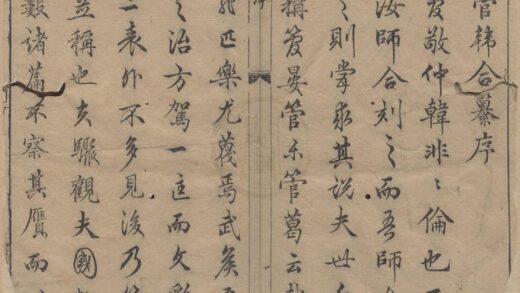 管韓合纂序
管敬仲韓非〻倫也
汝師合刻之而吾師
之則掌求其說夫世
稱管晏管樂管葛云
匹樂尤蔑焉武侯
之治方駕一匡而文
一表外不多見後乃
並稱也夫驟觀夫國
數諸篇不察其贋而